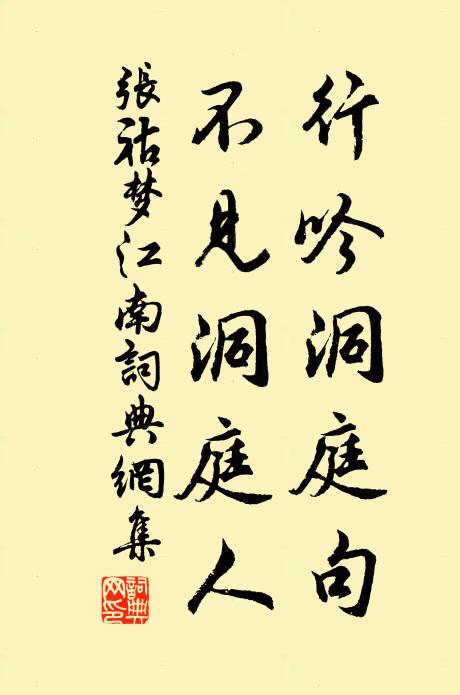 行吟洞庭句
不見洞庭人
張祜梦江南詞典網集
詞典
网印